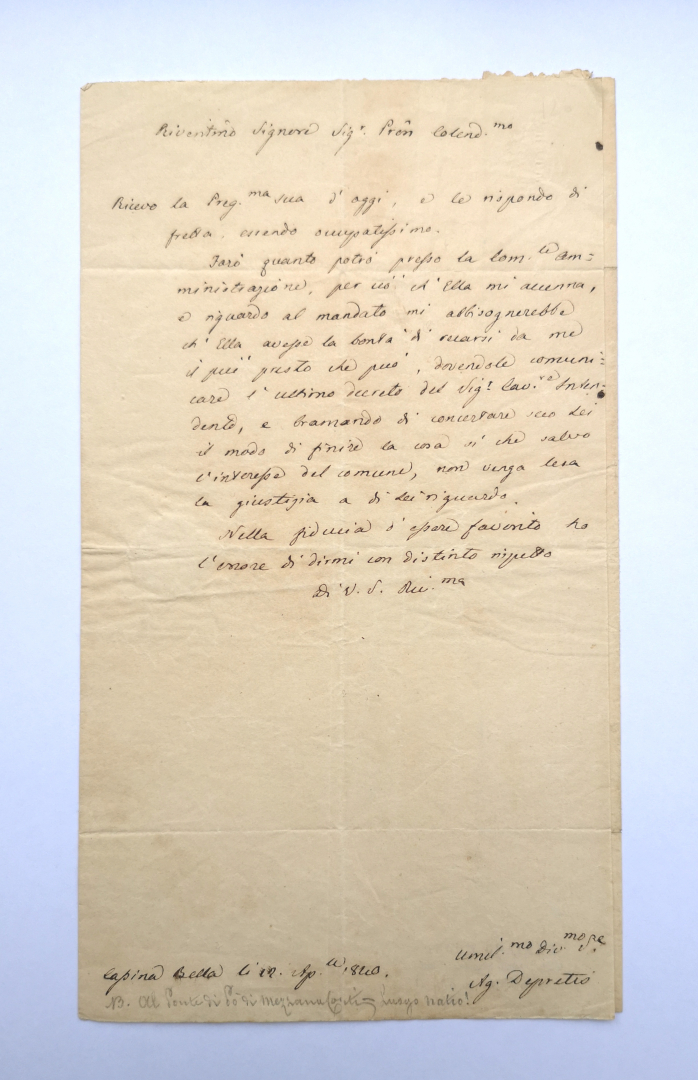 Riveritmo Signore Sig.r Pron Colend.mo
Ricevo la Preg.ma sua d'oggi, e le rispondo di
fretta, essendo occupatissimo.
Farò quanto potrò presso la Com.le Am=
ministrazione, per ciò ch'Ella mi accenna,
e riguardo al mandato mi abbisognerebbe
ch'Ella avesse la bontà di recarsi da me
il più presto che può, dovendole comuni=
care l'ultimo decreto del Sig.r Cav.re Inten=
dente, e bramando di concertare seco Lei
il modo di finire la cosa sì che salvo
l'interesse del comune, non venga lesa
la giustizia a di Lei riguardo.
Nella fiducia d'essere favorito ho
l'onore di dirmi con distinto rispetto
Di V. S. Riv.ma
Umil.mo Div.mo Se.
Capina Bella li 12. Ap.le 1840.
Ag. Depretis
NB. Al Ponte di Pò di Mezzana Corti = Luogo natio!